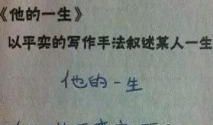 《他的一生》
以平实的写作手法叙述某人一生
他的一生